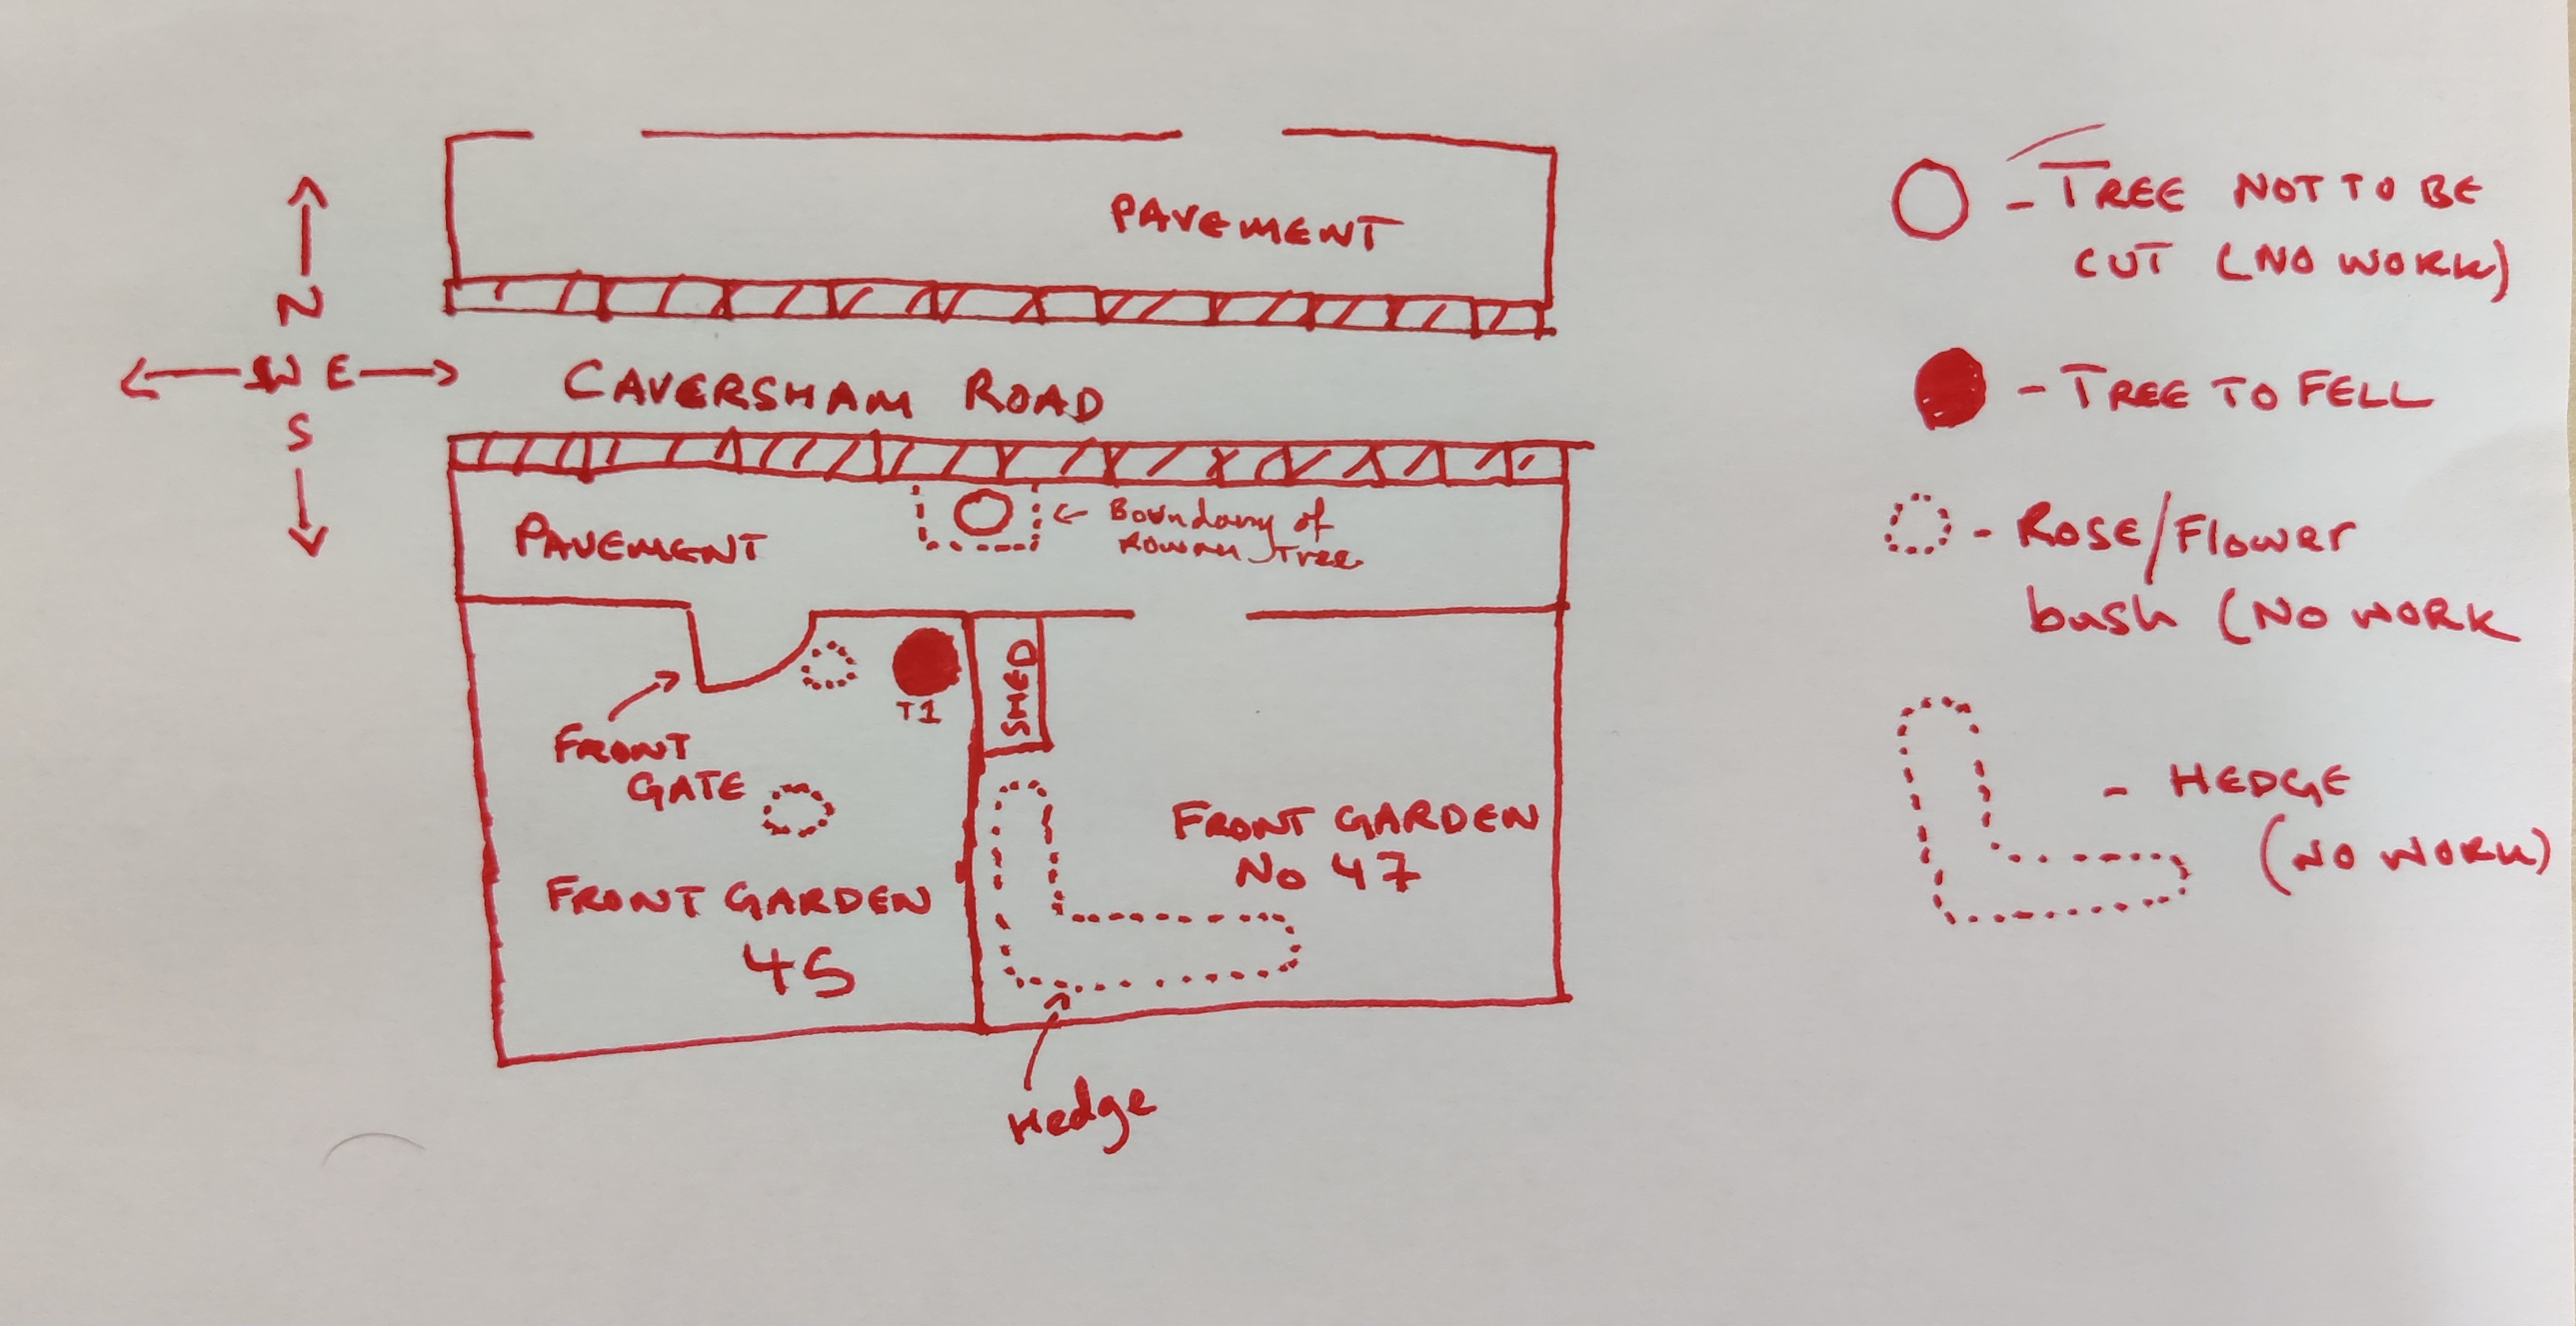 PAVEMENT
N
W E
S
CAVERSHAM ROAD
PAVEMENT
← Boundary of
Rowan Tree
T1
SHED
FRONT
GATE
FRONT GARDEN
45
FRONT GARDEN
No 47
Hedge
- TREE NOT TO BE
CUT (NO WORK)
- TREE TO FELL
- ROSE/Flower
bush (NO WORK
- HEDGE
(NO WORK)